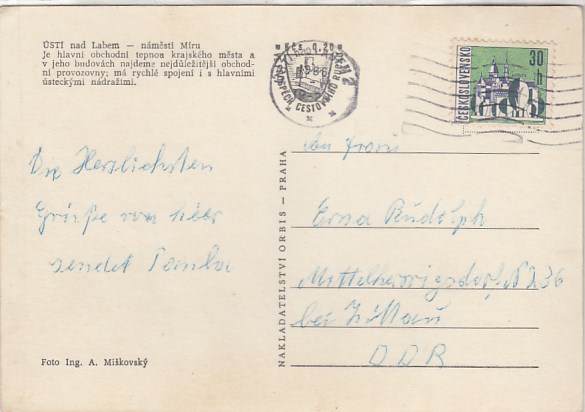 ÚSTÍ nad Labem — náměstí Míru
Je hlavní obchodní tepnou krajského města a
v jeho budovách najdeme nejdůležitější obchod-
ní provozovny; má rychlé spojení i s hlavními
ústeckými nádražími.
Kčs 0.20
ČESKOSLOVENSKO
30
h
CESTOVNÍHO
Die Herzlichsten
Grüße von hier
sendet
NAKLADATELSTVÍ ORBIS — PRAHA
Erna Rudolph
Mittelherwigsdorf N 236
bei Zittau
DDR
Foto Ing. A. Miškovský